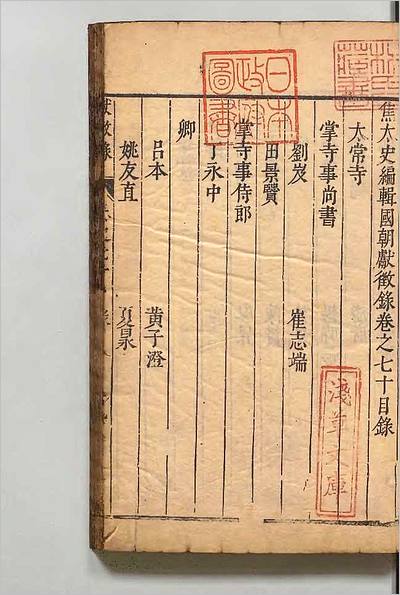 焦太史編輯國朝獻徵錄卷之七十目錄
太常寺
掌寺事尚書
劉岌 崔志端
田景賢
掌寺事侍郎
丁永中
卿
呂本 黃子澄
姚友直 夏㫤
獻徵錄
日本
政府
圖書
淺草文庫